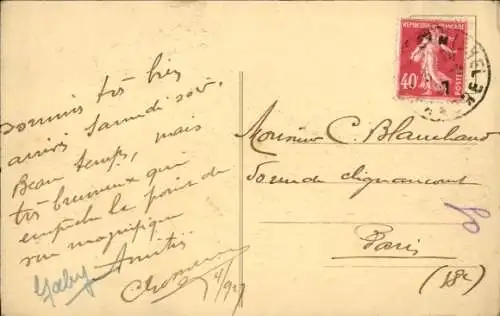 Sommes très bien
arrivés Samedi soir.
Beau temps, mais
très brumeux qui
empêche la
vue magnifique
Amitiés
Gaby
4/9
REPUBLIQUE FRANÇAISE
40c
POSTES
Monsieur C. Blanchard
50 rue de Clignancourt
Paris
(18e)